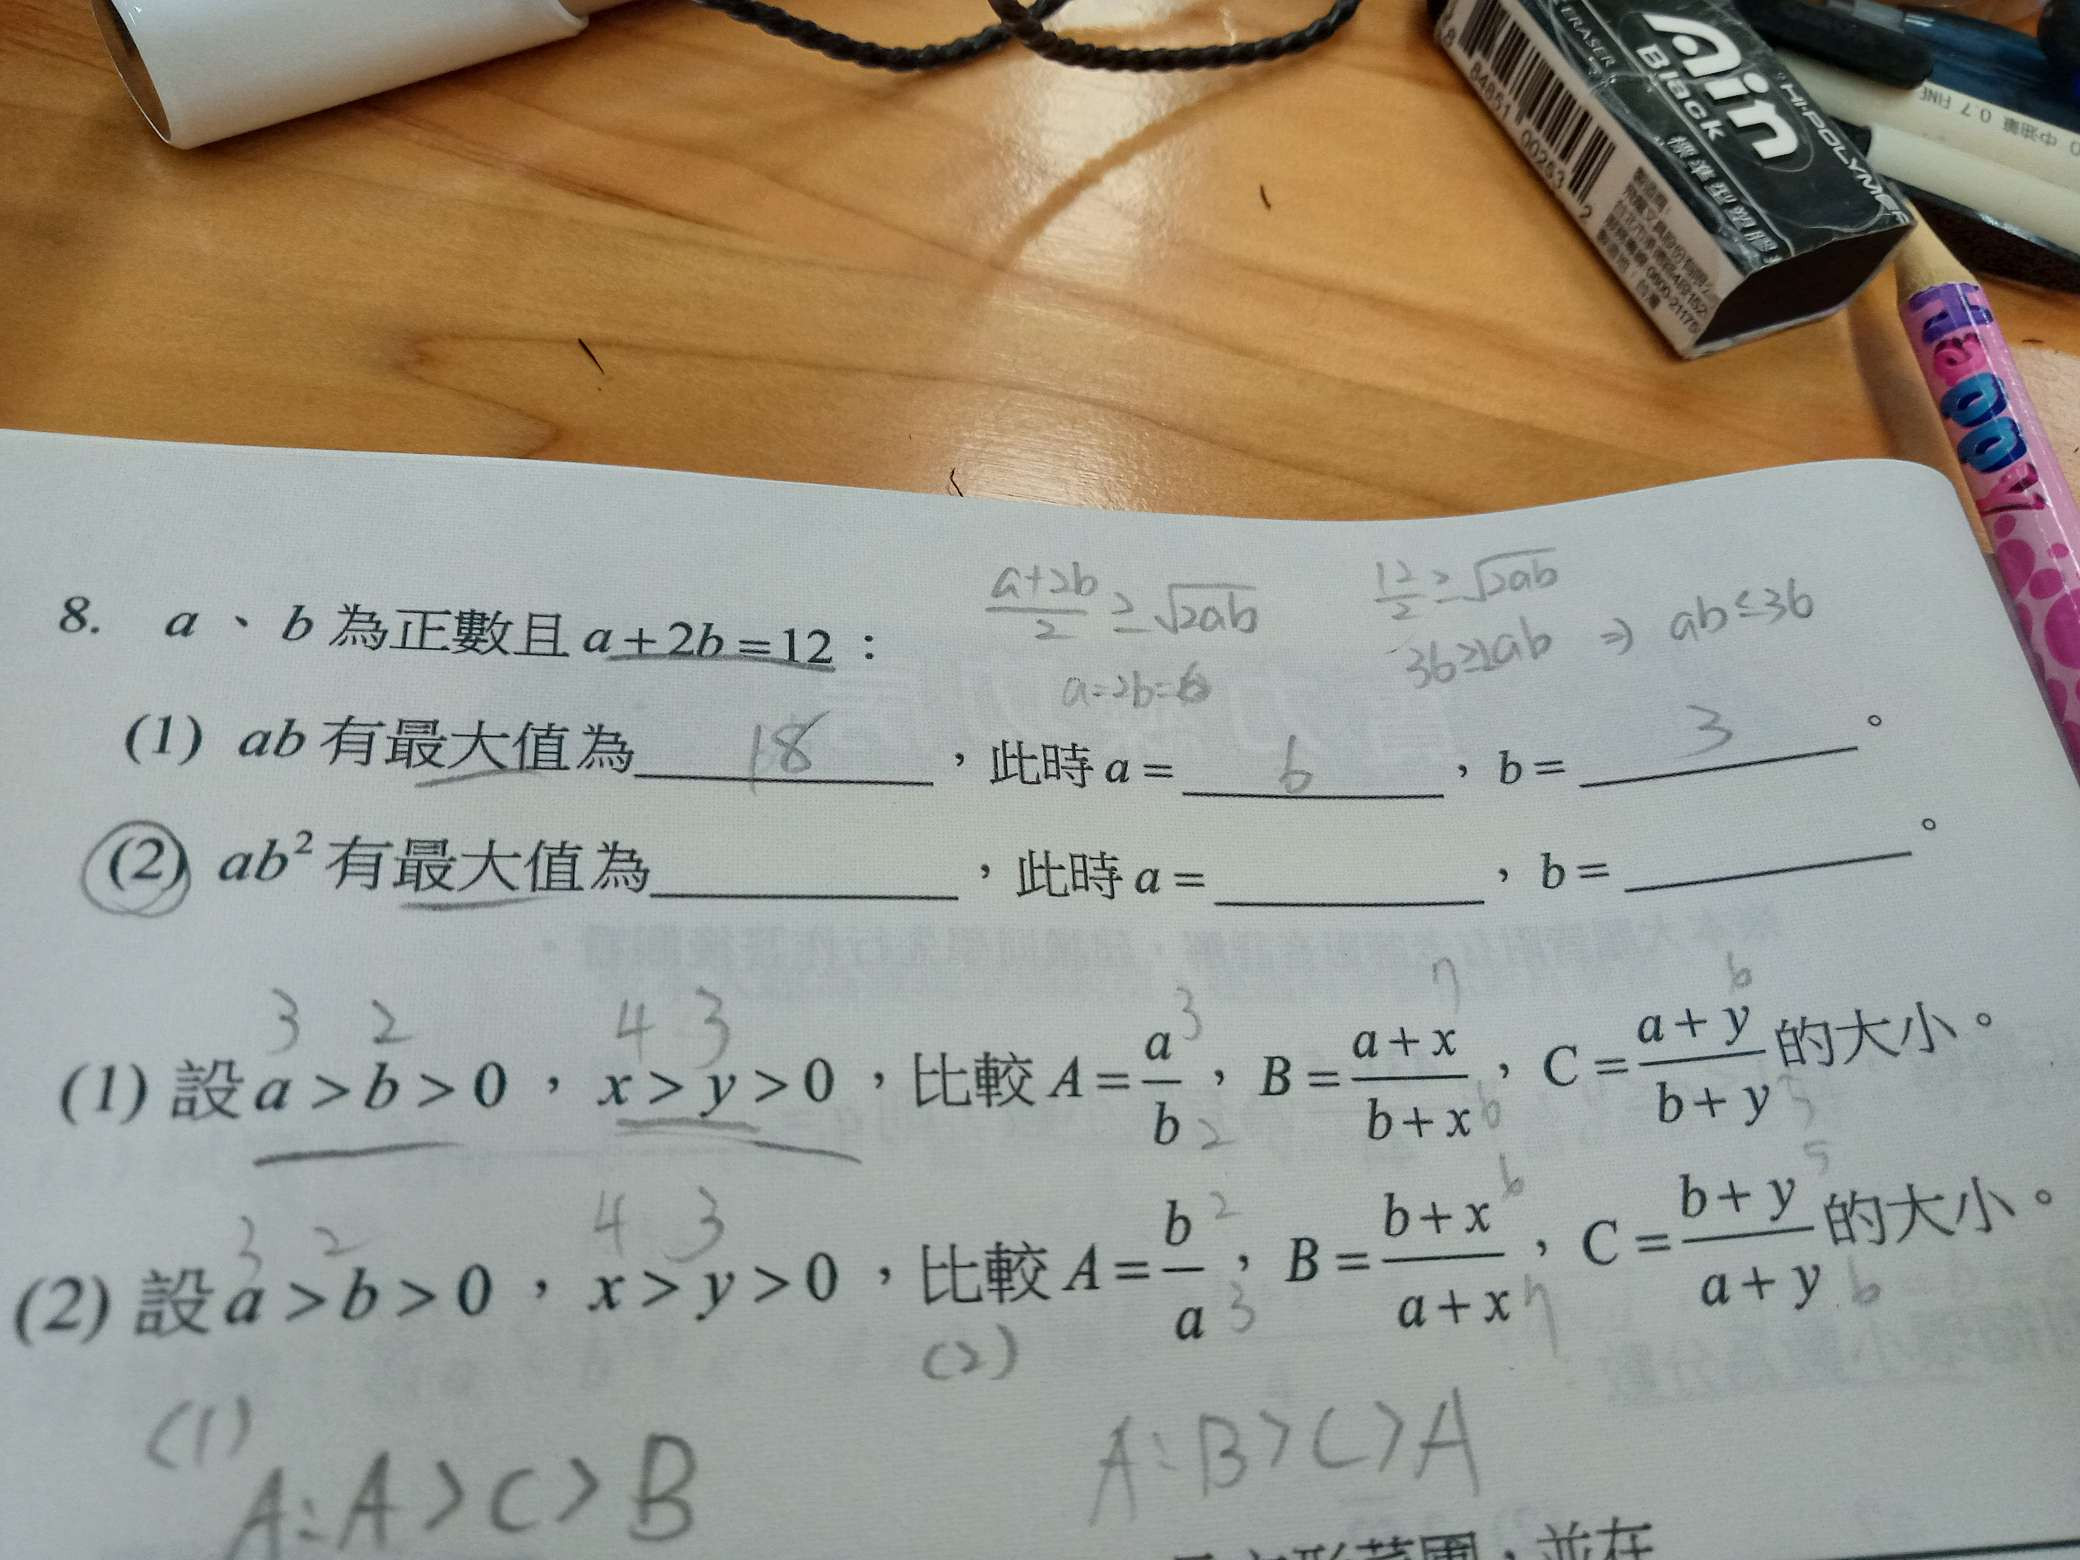 ERASER
Ain
Black
HI-POLYMER
標準型塑膠
84851 00253 2
0.7 FINE
Happy
8. a、b 為正數且 a+2b=12：
(a+2b)/2 ≥ √2ab
12/2 ≥ √2ab
a=2b=6
36≥2ab ⇒ ab≤36
(1) ab 有最大值為 18 ，此時 a= 6 ，b= 3 。
(2) ab² 有最大值為________，此時 a=________，b=________。
3 2 4 3 3 7 6
(1) 設 a>b>0，x>y>0，比較 A=a/b，B=(a+x)/(b+x)，C=(a+y)/(b+y) 的大小。
2 6 5
3 2 4 3 2 6 5
(2) 設 a>b>0，x>y>0，比較 A=b/a，B=(b+x)/(a+x)，C=(b+y)/(a+y) 的大小。
3 7 6
(1)
A：A>C>B
(2)
A：B>C>A
範圍，並在